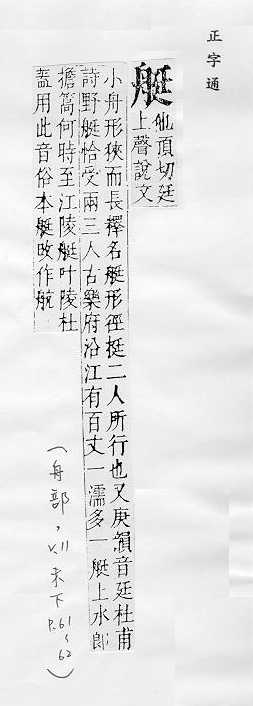 正字通
艇
他頂切廷
上聲說文
小舟形狹而長釋名艇形徑挺二人所行也又庚韻音廷杜甫
詩野艇恰受兩三人古樂府沿江有百丈一濡多一艇上水郎
擔篙何時至江陵艇叶陵杜
蓋用此音俗本艇改作航
(舟部,V.11未下P.61~62)